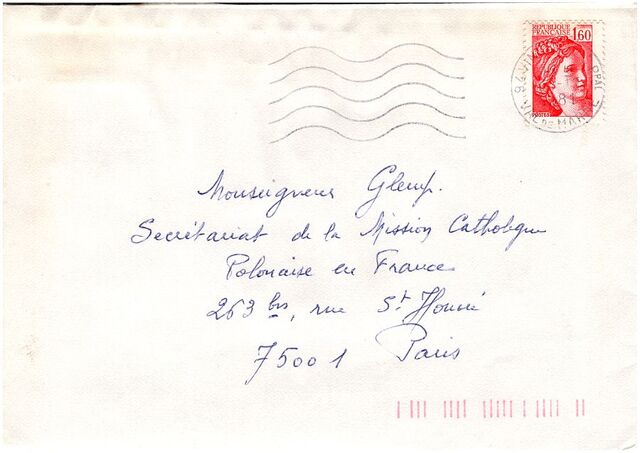 REPUBLIQUE
FRANCAISE 1,60
94 VI
81
VAL DE MAR
Monseigneur Glemp.
Secrétariat de la Mission Catholique
Polonaise en France
263 bis, rue St Honoré
75001 Paris